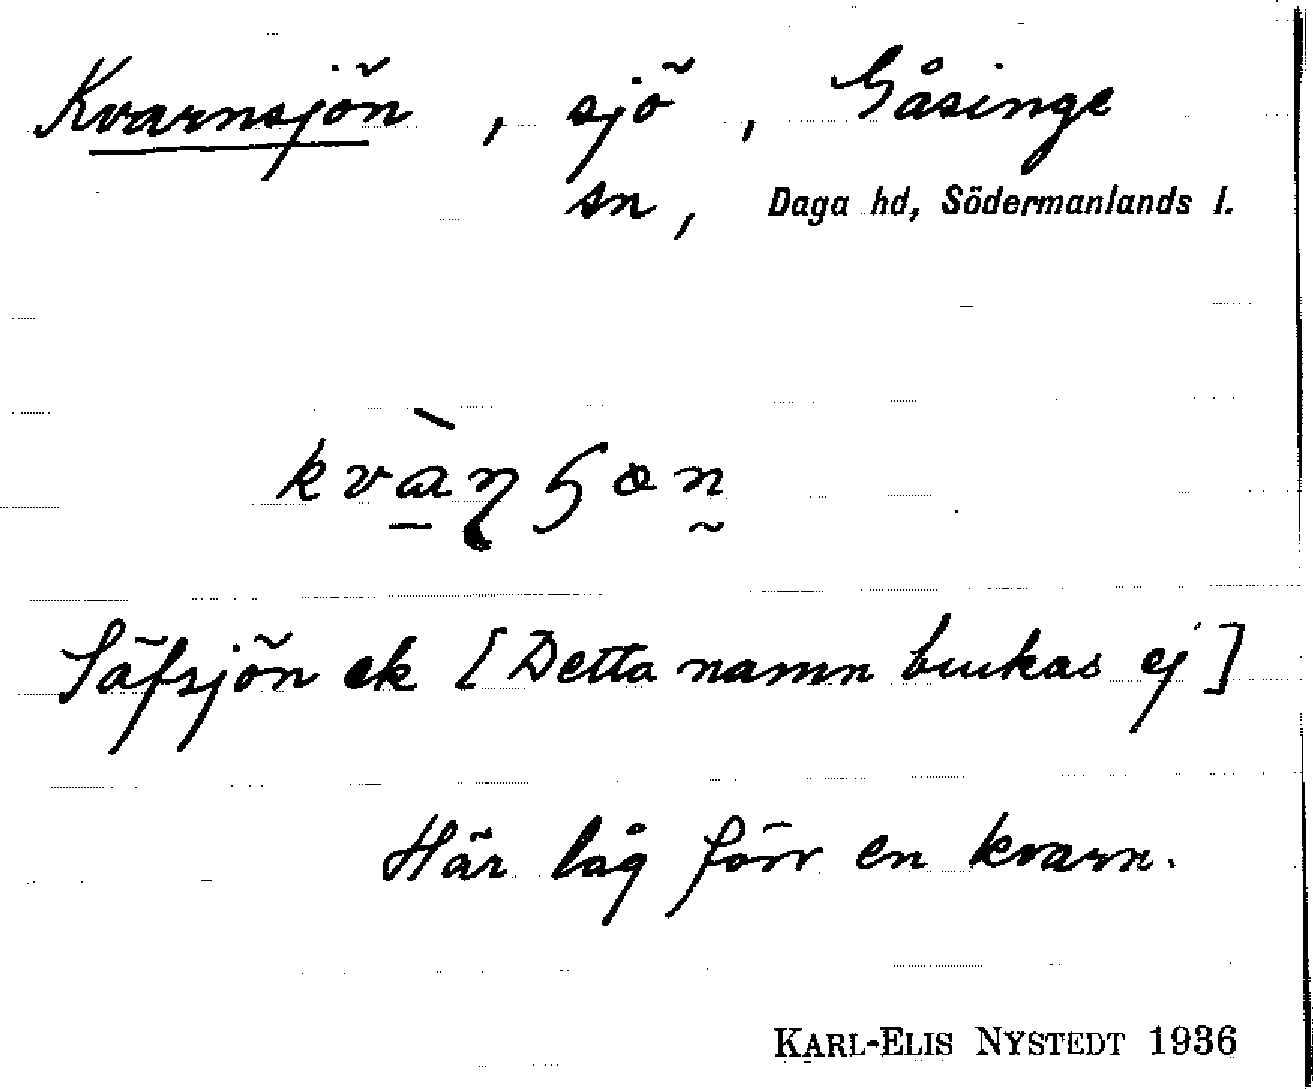 Kvarnsjön, sjö, Gåsinge
sn, Daga hd, Södermanlands l.
Säfsjön ek [Detta namn brukas ej]
Här låg förr en kvarn.
KARL-ELIS NYSTEDT 1936